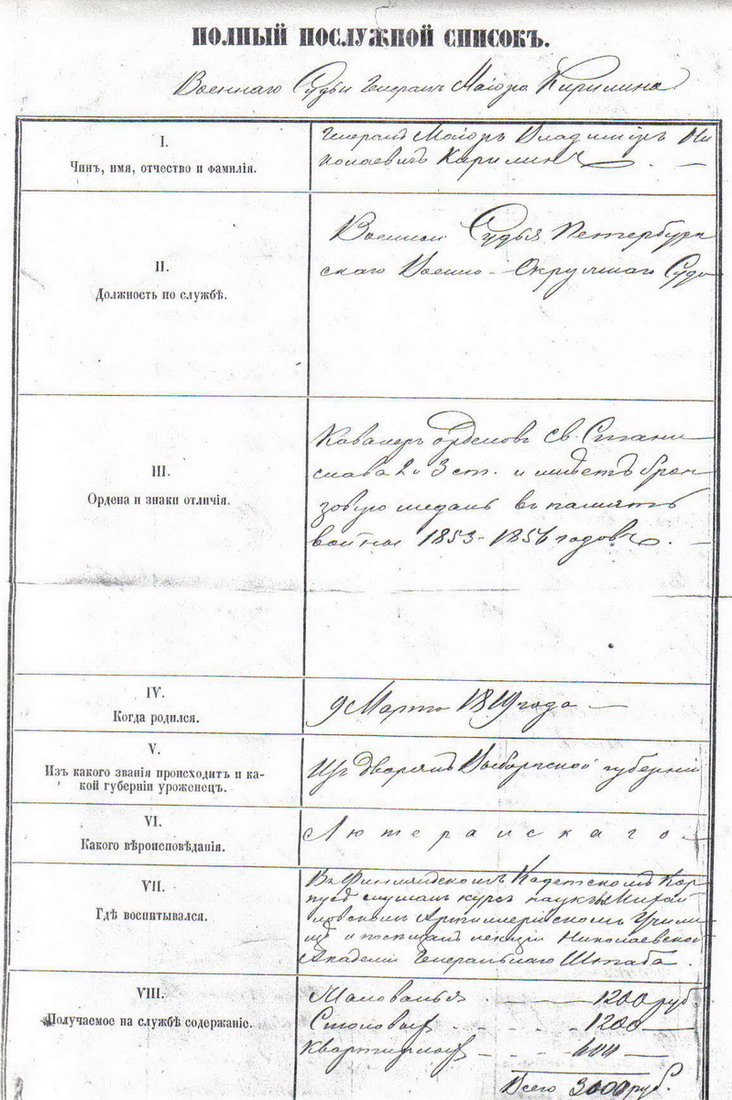 ПОЛНЫЙ ПОСЛУЖНОЙ СПИСОКЪ.
Военнаго Судьи Генералъ Маіора Кирилина
I.
Чинъ, имя, отчество и фамилія.
Генералъ Маіоръ Владиміръ Ни
колаевичъ Кирилинъ
II.
Должность по службѣ.
Военный Судья Петербург
скаго Военно-Окружнаго Суда
III.
Ордена и знаки отличія.
Кавалеръ орденовъ св. Стани
слава 2 и 3 ст. и имѣетъ брон
зовую медаль въ память
войны 1853-1856 годовъ.
IV.
Когда родился.
9 Марта 1819 года
V.
Изъ какого званія происходитъ и ка-
кой губерніи уроженецъ.
Изъ дворянъ Выборгской губерніи
VI.
Какого вѣроисповѣданія.
Лютеранскаго
VII.
Гдѣ воспитывался.
Въ Финляндскомъ Кадетскомъ Кор
пусѣ слушалъ курсъ наукъ въ Михай
ловскомъ Артиллерійскомъ Учили
щѣ и посѣщалъ лекціи Николаевской
Академіи Генеральнаго Штаба.
VIII.
Получаемое на службѣ содержаніе.
Жалованья 1200 руб.
Столовыхъ 1200
Квартирныхъ 600
Всего 3000 руб.